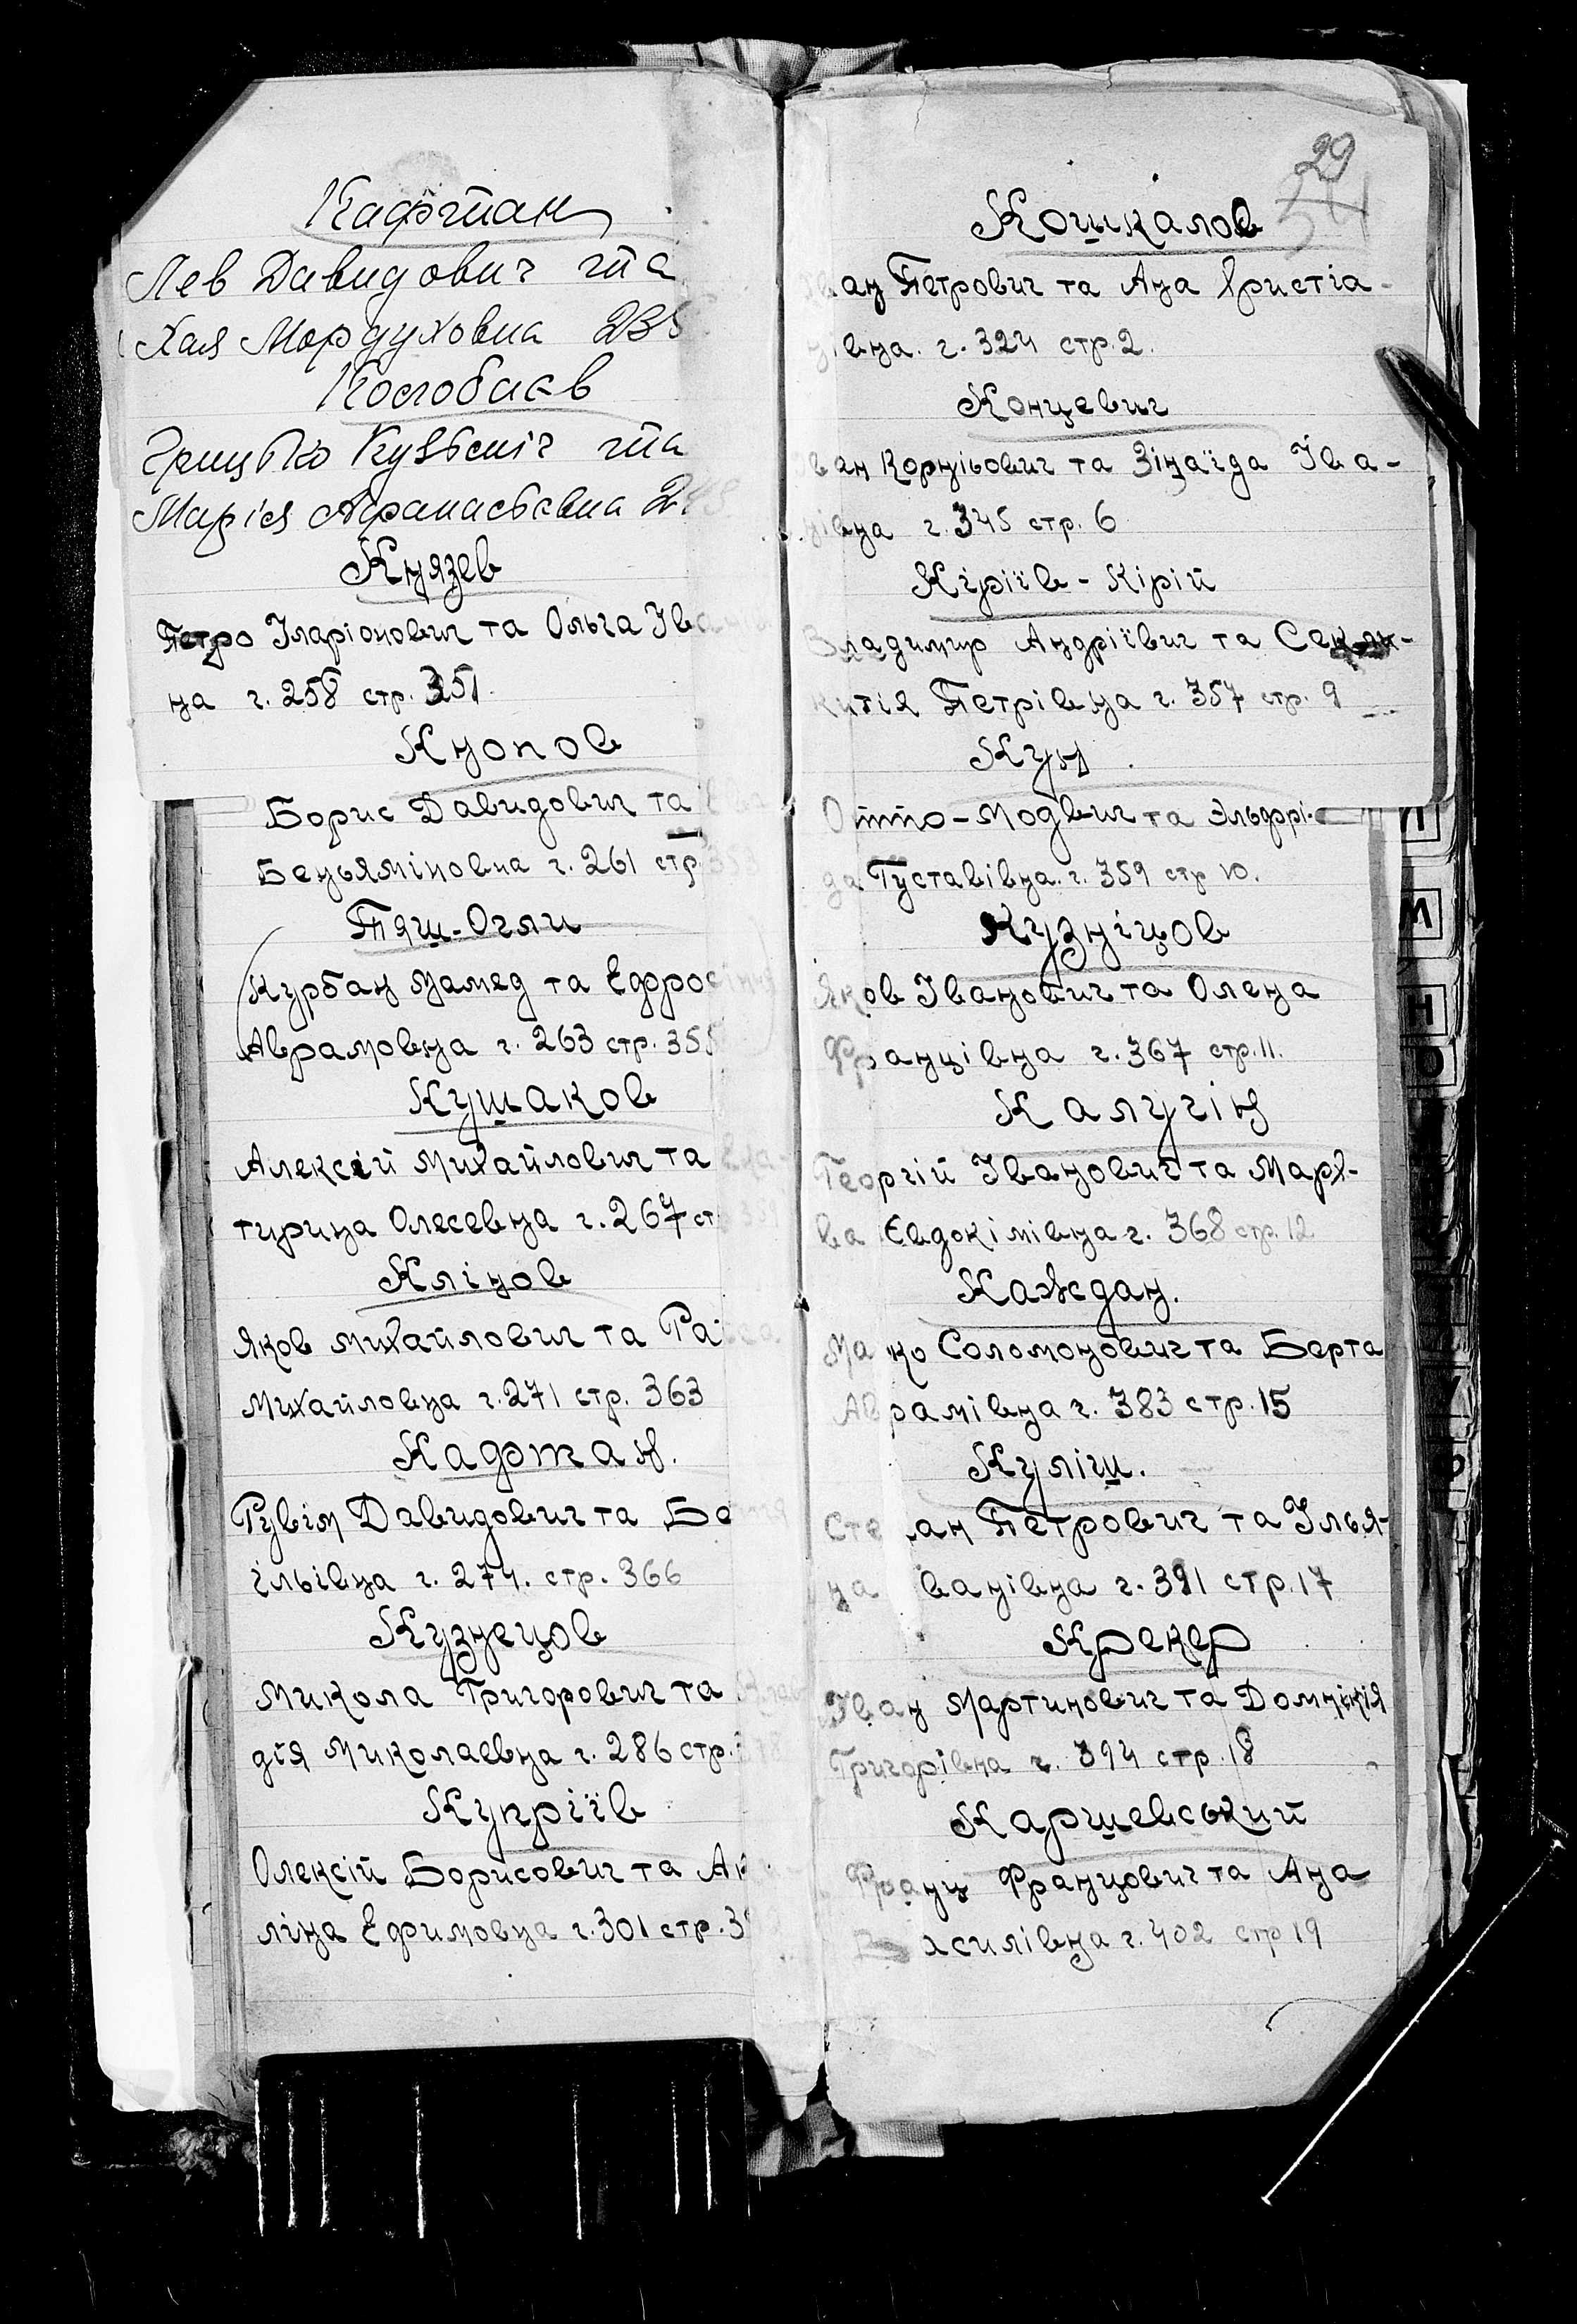 Кафтан
Лев Давидович та
Хая Мордуховна 235
Костобаєв
Грицько Кузьєміч та
Марія Афанасьєвна 2
Князев
Петро Іларіонович та Ольга Іва
на г. 258 стр. 351.
Кнопов
Борис Давидович та
Беньяміновна г. 261 стр.
Пяш-Огли
Курбан Мамед та Ефрос
Аврамовна г. 263 стр. 355
Кушаков
Алексій Михайлович та Ека-
турина Олесевна г. 267 ст 359
Клінов
Яков Михайлович та Раіса
Михайловна г. 271 стр. 363
Кафтан.
Рувім Давидович та Бе
ільівна г. 274. стр. 366
Кузнецов
Микола Григорович та Клав
дія Миколаевна г. 286 стр.
Купріїв
Олексій Борисович та Ак
ліна Ефимовна г. 301 стр. 39
29
Кошкалов
Іван Петрович та Ана Христіа-
нівна. г. 324 стр. 2.
Концевич
Іван Корнійович та Зінаїда Іва-
нівна г. 345 стр. 6
Кіріїв - Кірій
Владимир Андрієвич та
Петрівна г. 357 стр. 9
Кун
Отто-Модвич та Эльфрі-
да Густавівна. г. 359 стр 10.
Кузніцов
Яков Іванович та Олена
Францівна г. 367 стр. 11.
Калугін
Георгій Іванович та Мар'я-
ва Євдокімівна г. 368 стр. 12
Каждан.
Ма ко Соломонович та Берта
Аврамівна г. 383 стр. 15
Куліш.
Сте ан Петрович та Ілья-
на ванівна г. 391 стр. 17
Крекер
Іван Мартинович та Домнікія
Григорівна г. 394 стр. 18
Каршевський
Франц Францович та Ана
Василівна г. 402 стр 19
М
Н
О
У
Ф